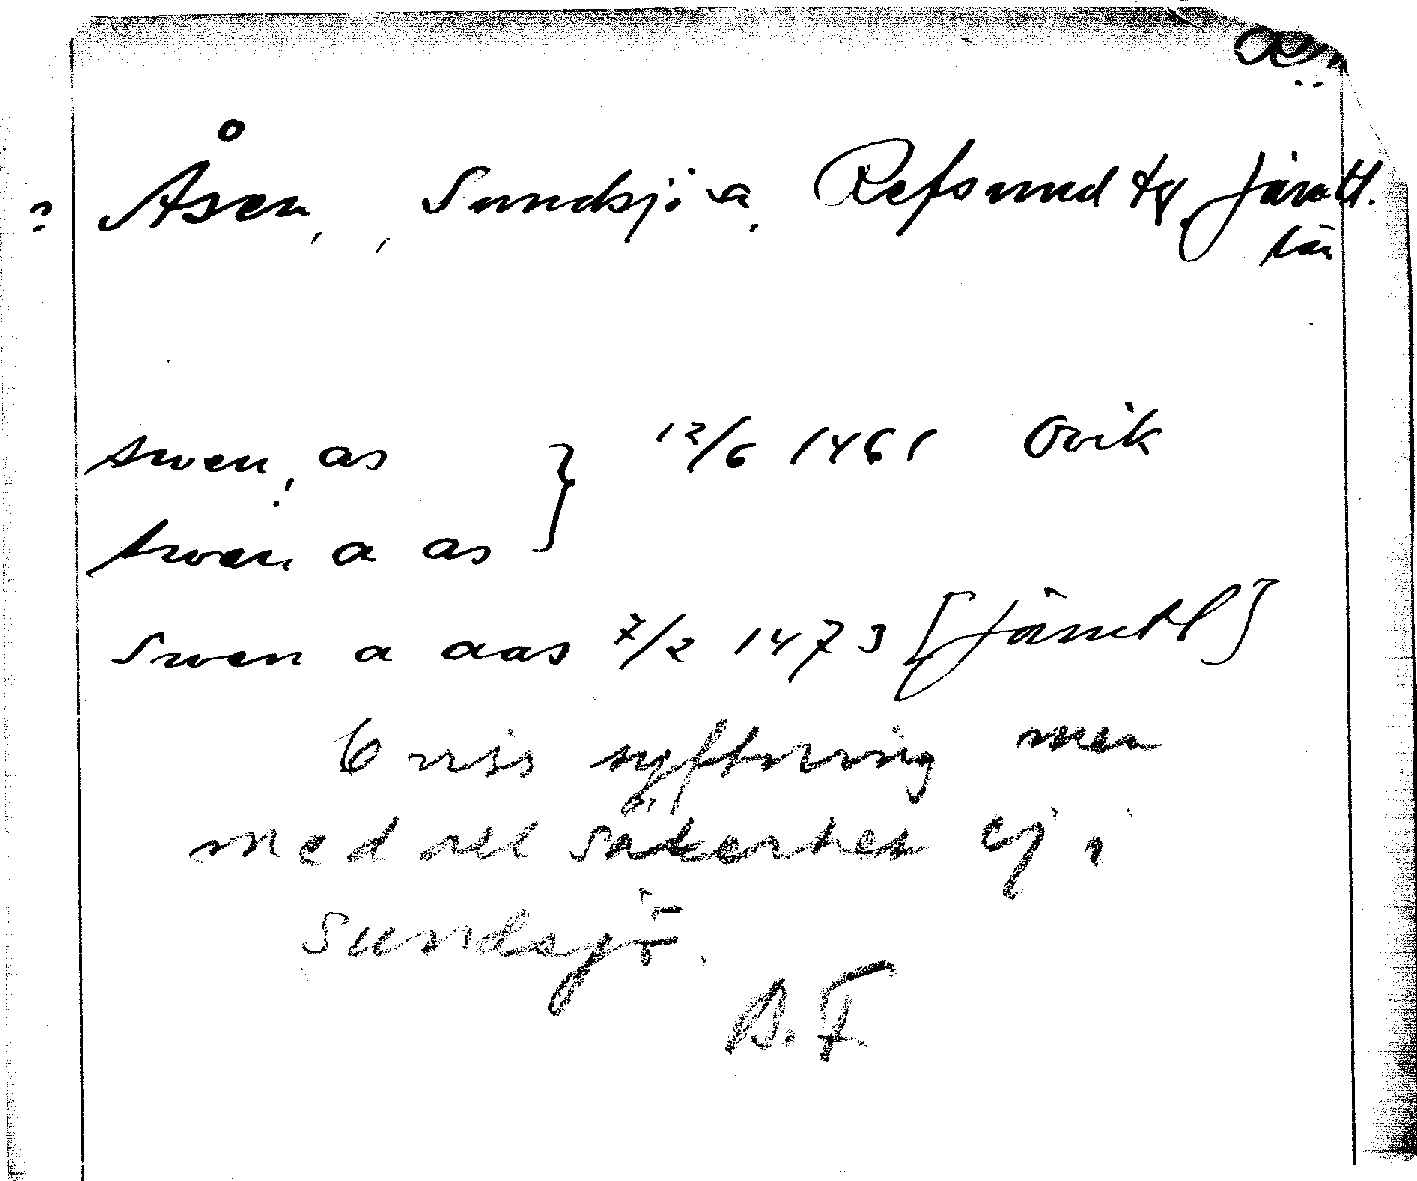 ? Åsen, , Sundsjö sn. Refsund tg, Jämtl.
län
swen, as } 12/6 1461 Ovik
swen a as
Swen a aas 7/2 1473 [Jämtl]
Oviss syftning men
med all säkerhet ej i
Sundsjö.
B. F.